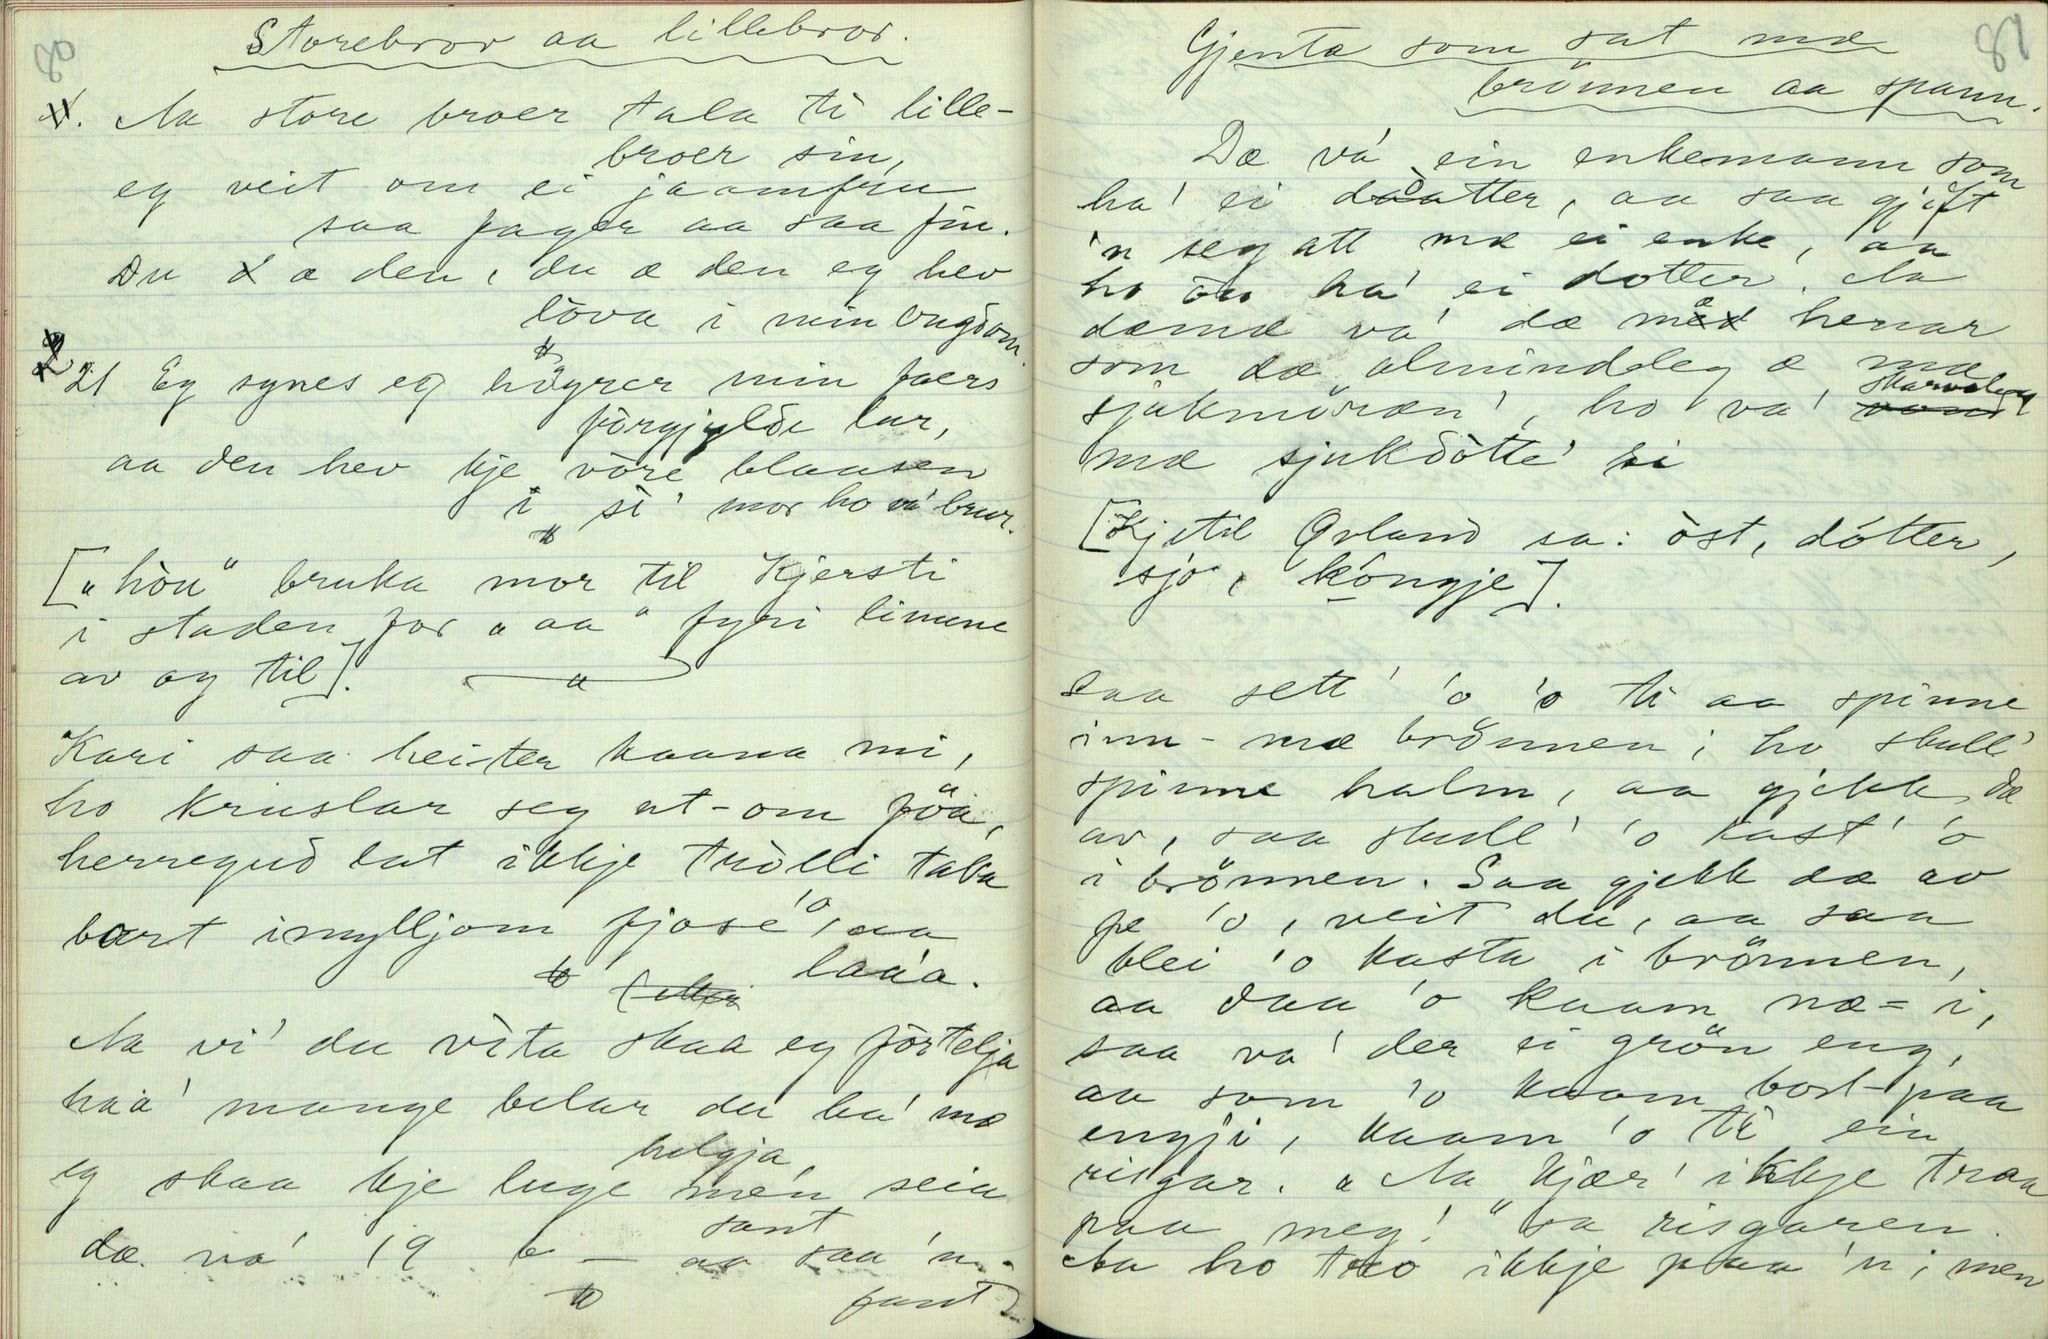 80
Storebror aa lillebror.
1. Aa store broer tala ti lille-
broer sin,
eg veit om ei jaamfru
saa fager aa saa fin.
Du æ den, du æ den eg hev
lòva i min ungdom.
2 Eg synes eg høyrer min faers
fòrgjylde lur,
aa den hev kje vòre blaasen
i si' mor ho va' brur.
["hòu" bruka mor til Kjersti
i staden for "aa" fyri linune
av og til].
Kari saa heiter kaana mi,
ho kruslar seg ut-om föa,
herregud lat ikkje tròlli taka
bort imylljom fjose' aa
laa'a.
Aa vi' du vita skaa eg fòrtelja
haa' mange belar du ha' mæ
helgja
eg skaa kje luge men seia
sant
dæ va' 19 b — aa saa 'n
fant
81
Gjenta som sat mæ
brönnen aa spann.
Dæ va' ein enkemann som
ha' ei daatter, aa saa gjift
'n seg att mæ ei enke, aa
ho òu ha' ei dotter. Aa
dæmæ va' dæ mæ henar
som dæ almindeleg æ mæ
sjukmöræn', ho va' skarvaleg
mæ sjukdòtte' si
[Kjetil Ørland sa: òst, dótter,
sjò, kòngje].
saa sett' 'o 'o ti aa spinne
inn-mæ brönnen; ho skull'
spinne halm, aa gjekk dæ
av, saa skull' 'o kast' 'o
i brönnen. Saa gjekk dæ av
fe 'o, veit du, aa saa
blei 'o kasta i brönnen,
aa daa 'o kaam næ-i,
saa va' der ei grön eng,
aa som 'o kaam bort-paa
engji, kaam 'o ti ein
risgar. "Aa kjær' ikkje traa
paa meg!" sa risgaren.
Aa ho tro ikkje paa 'n; men